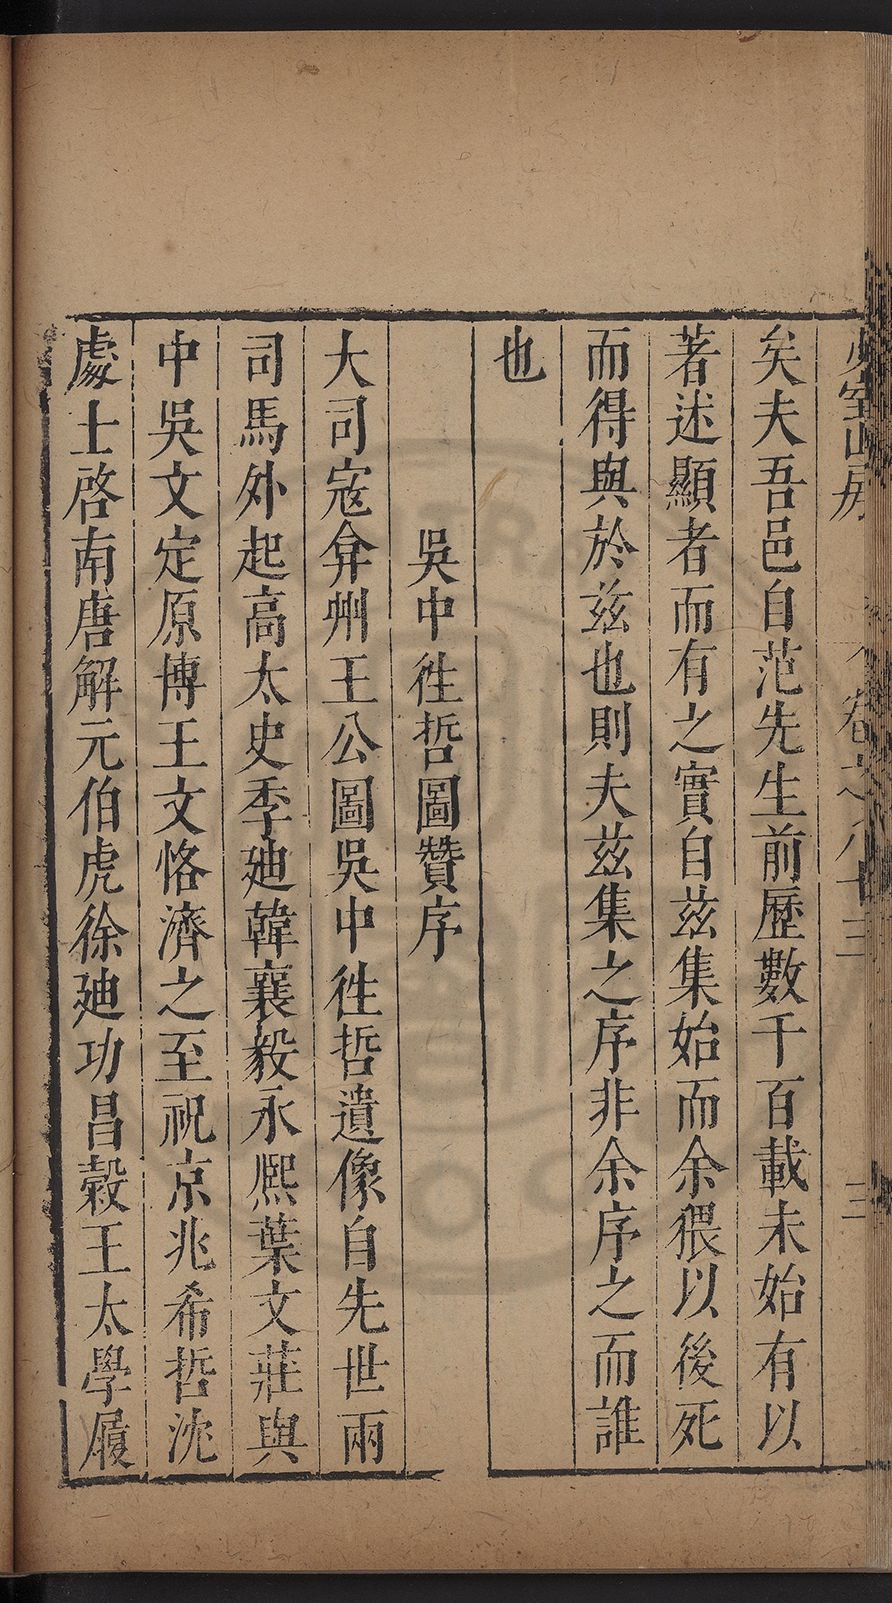 少室山房 卷之八十三 三
矣夫吾邑自范先生前歷數千百載未始有以
著述顯者而有之實自茲集始而余猥以後死
而得與於茲也則夫茲集之序非余序之而誰
也
吳中徃哲圖贊序
大司寇弇州王公圖吳中徃哲遺像自先世兩
司馬外起高太史季廸韓襄毅永熈葉文莊與
中吳文定原博王文恪濟之至祝京兆希哲沈
處士啓南唐解元伯虎徐廸功昌榖王太學履